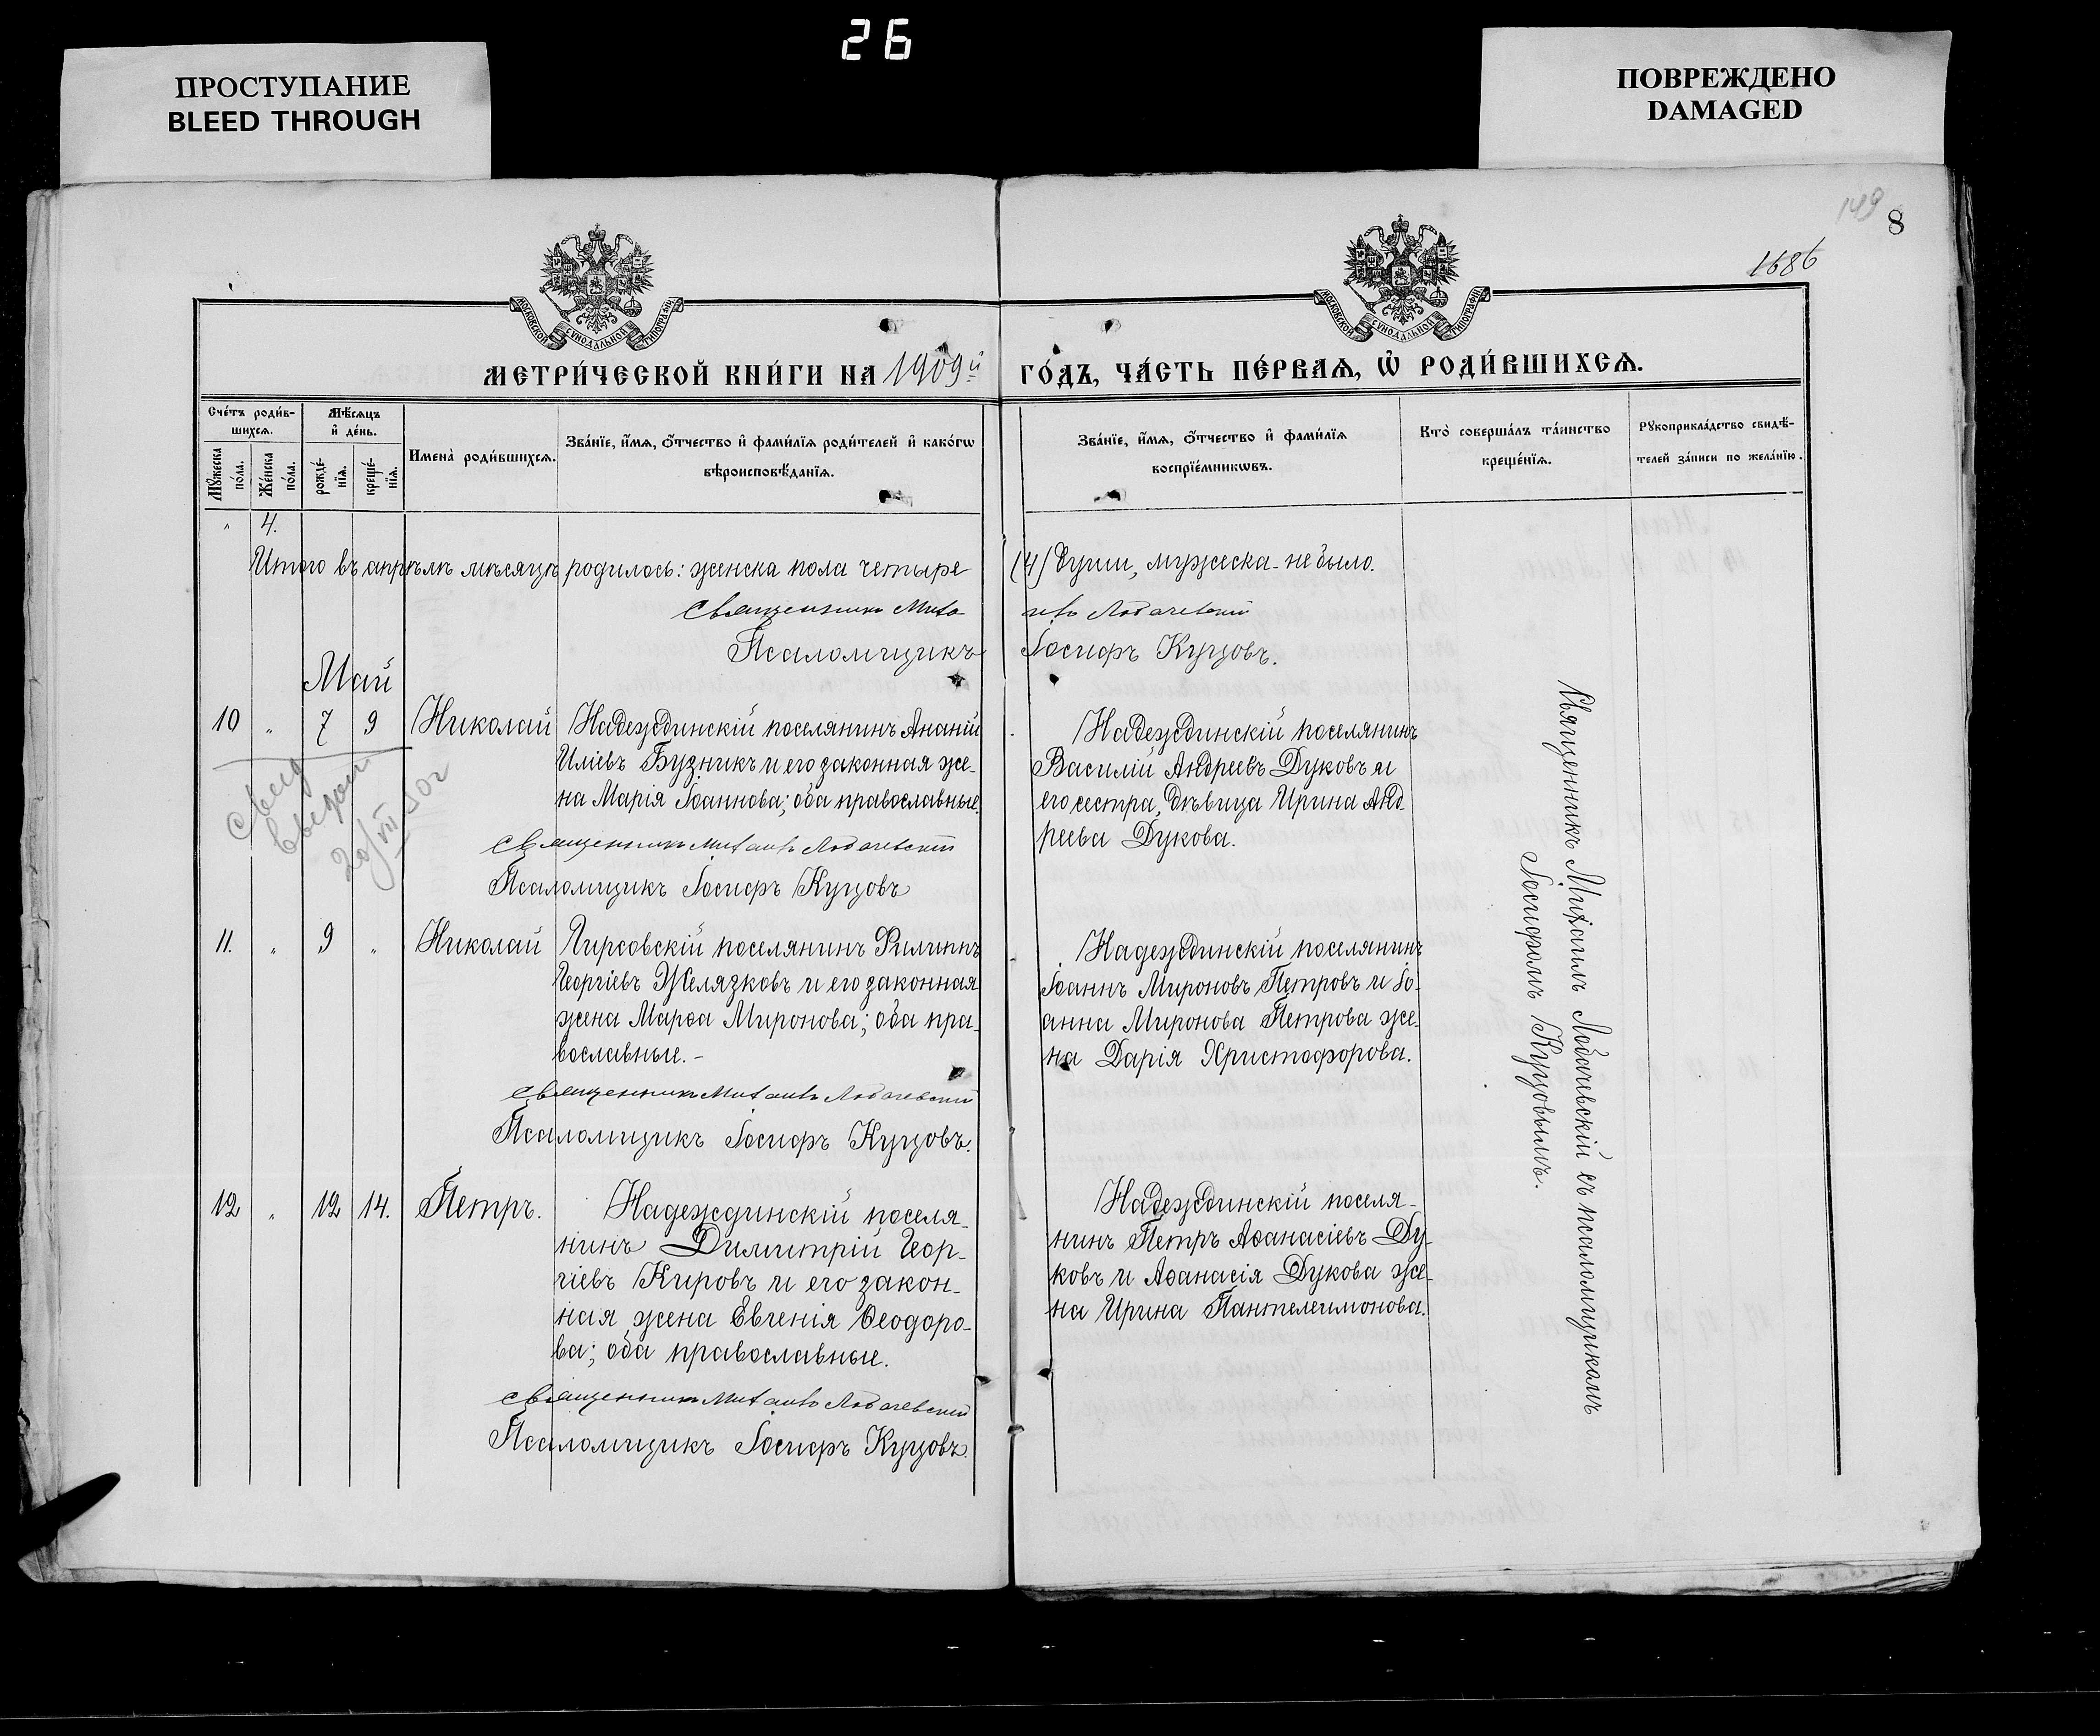 26
ПРОСТУПАНИЕ
BLEED THROUGH
ПОВРЕЖДЕНО
DAMAGED
149
8
1686
МОСКОВСКОЙ СѴНОДАЛЬНОЙ ТИПОГРАФІИ
МОСКОВСКОЙ СѴНОДАЛЬНОЙ ТИПОГРАФІИ
МЕТРИ́ЧЕСКОЙ КНИ́ГИ НА 1909й ГО́ДЪ, ЧА́СТЬ ПЕ́РВАѦ, Ѽ РОДИ́ВШИХСѦ.
Сче́тъ роди́в-
шихсѧ.
Мѣ́сѧцъ
и҆ де́нь.
Мꙋ́жеска
по́ла.
Же́нска
по́ла.
рожде́-
нїѧ.
креще́-
нїѧ.
Имена̀ роди́вшихсѧ.
Зва́нїе, и҆́мѧ, ѻ҆́тчество и҆ фами́лїѧ роди́телей и҆ како́гѡ
вѣроисповѣ́данїѧ.
Зва́нїе, и҆́мѧ, ѻ҆́тчество и҆ фами́лїѧ
воспрїе́мникѡвъ.
Кто̀ соверша́лъ та́инство
креще́нїѧ.
Рꙋкоприкла́дство свидѣ́-
телей за́писи по жела́нїю.
" 4.
Итого въ апрѣлѣ мѣсяцѣ родилось: женска пола четыре (4) души, мужеска - не было.
Священникъ Михаилъ Лобачевскій
Псаломщикъ Іосифъ Куцовъ.
Май
10 " 7 9 Николай
Надеждинскій поселянинъ Ананій
Иліевъ Будникъ и его законная же-
на Марія Іоаннова; оба православные.
Священникъ Михаилъ Лобачевскій
Псаломщикъ Іосифъ Куцовъ
Надеждинскій поселянинъ
Василій Андреевъ Дуковъ и
его сестра, дѣвица Ирина Анд-
реева Дукова.
11. " 9 " Николай
Гирсовскій поселянинъ Филиппъ
Георгіевъ Желязковъ и его законная
жена Марѳа Миронова; оба пра-
вославные. -
Священникъ Михаилъ Лобачевскій
Псаломщикъ Іосифъ Куцовъ.
Надеждинскій поселянинъ
Іоаннъ Мироновъ Петровъ и Іо-
анна Миронова Петрова же-
на Дарія Христофорова.
12 " 12 14. Петръ.
Надеждинскій поселя-
нинъ Димитрій Геор-
гіевъ Кировъ и его закон-
ная жена Евгенія Ѳеодоро-
ва; оба православные.
Священникъ Михаилъ Лобачевскій
Псаломщикъ Іосифъ Куцовъ.
Надеждинскій поселя-
нинъ Петръ Аѳанасіевъ Ду-
ковъ и Аѳанасія Дукова же-
на Ирина Пантелеимонова.
Священникъ Михаилъ Лобачевскій съ псаломщикомъ
Іосифомъ Куцовымъ.